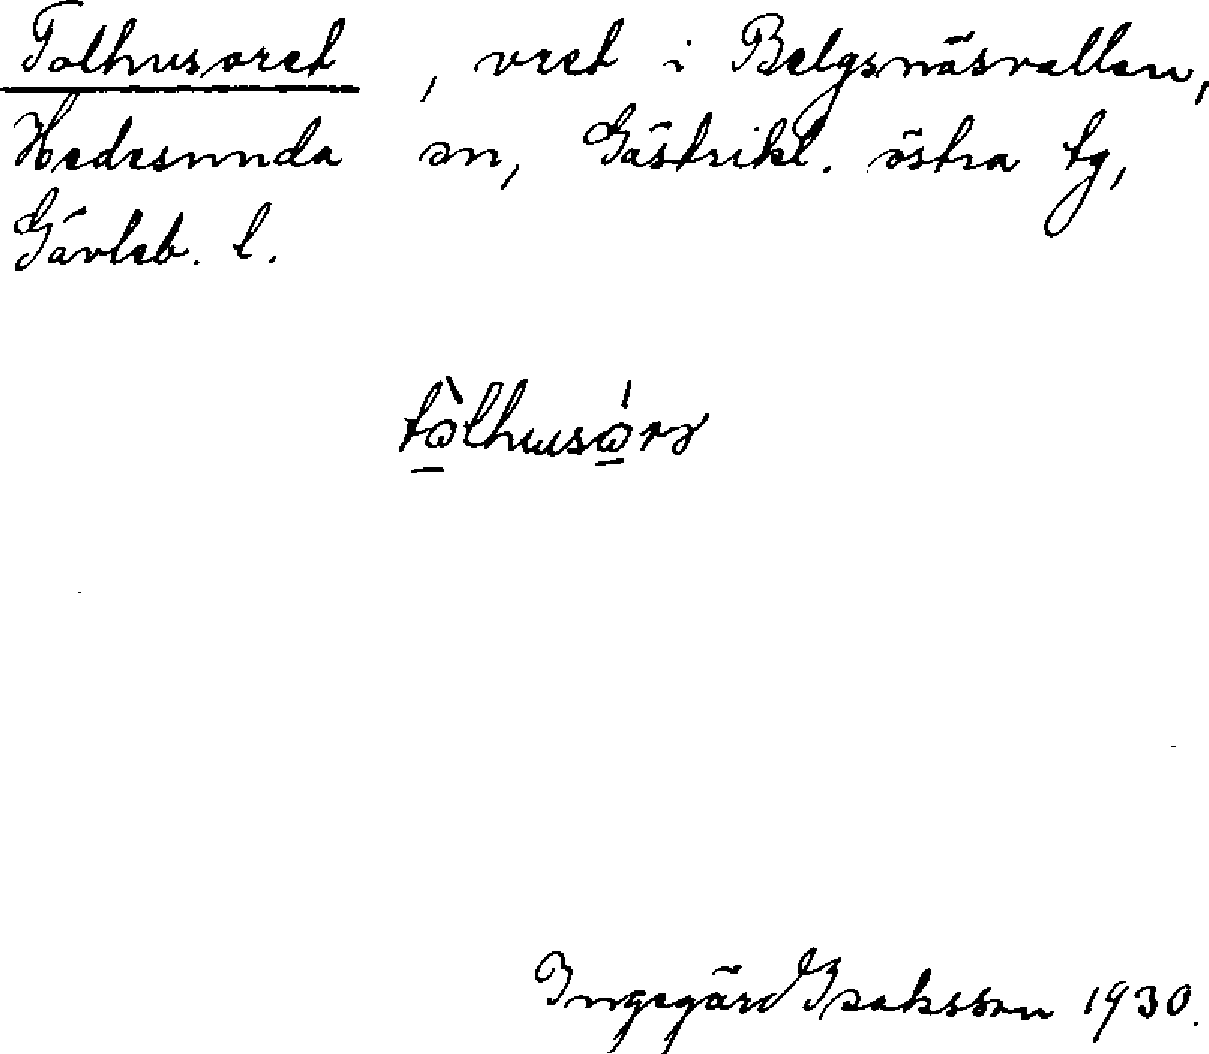 Tolhusoret, vret i Belgsnäsvallen,
Hedesunda sn, Gästrikl. östra tg,
Gävleb. l.
Ingegärd Isaksson 1930.